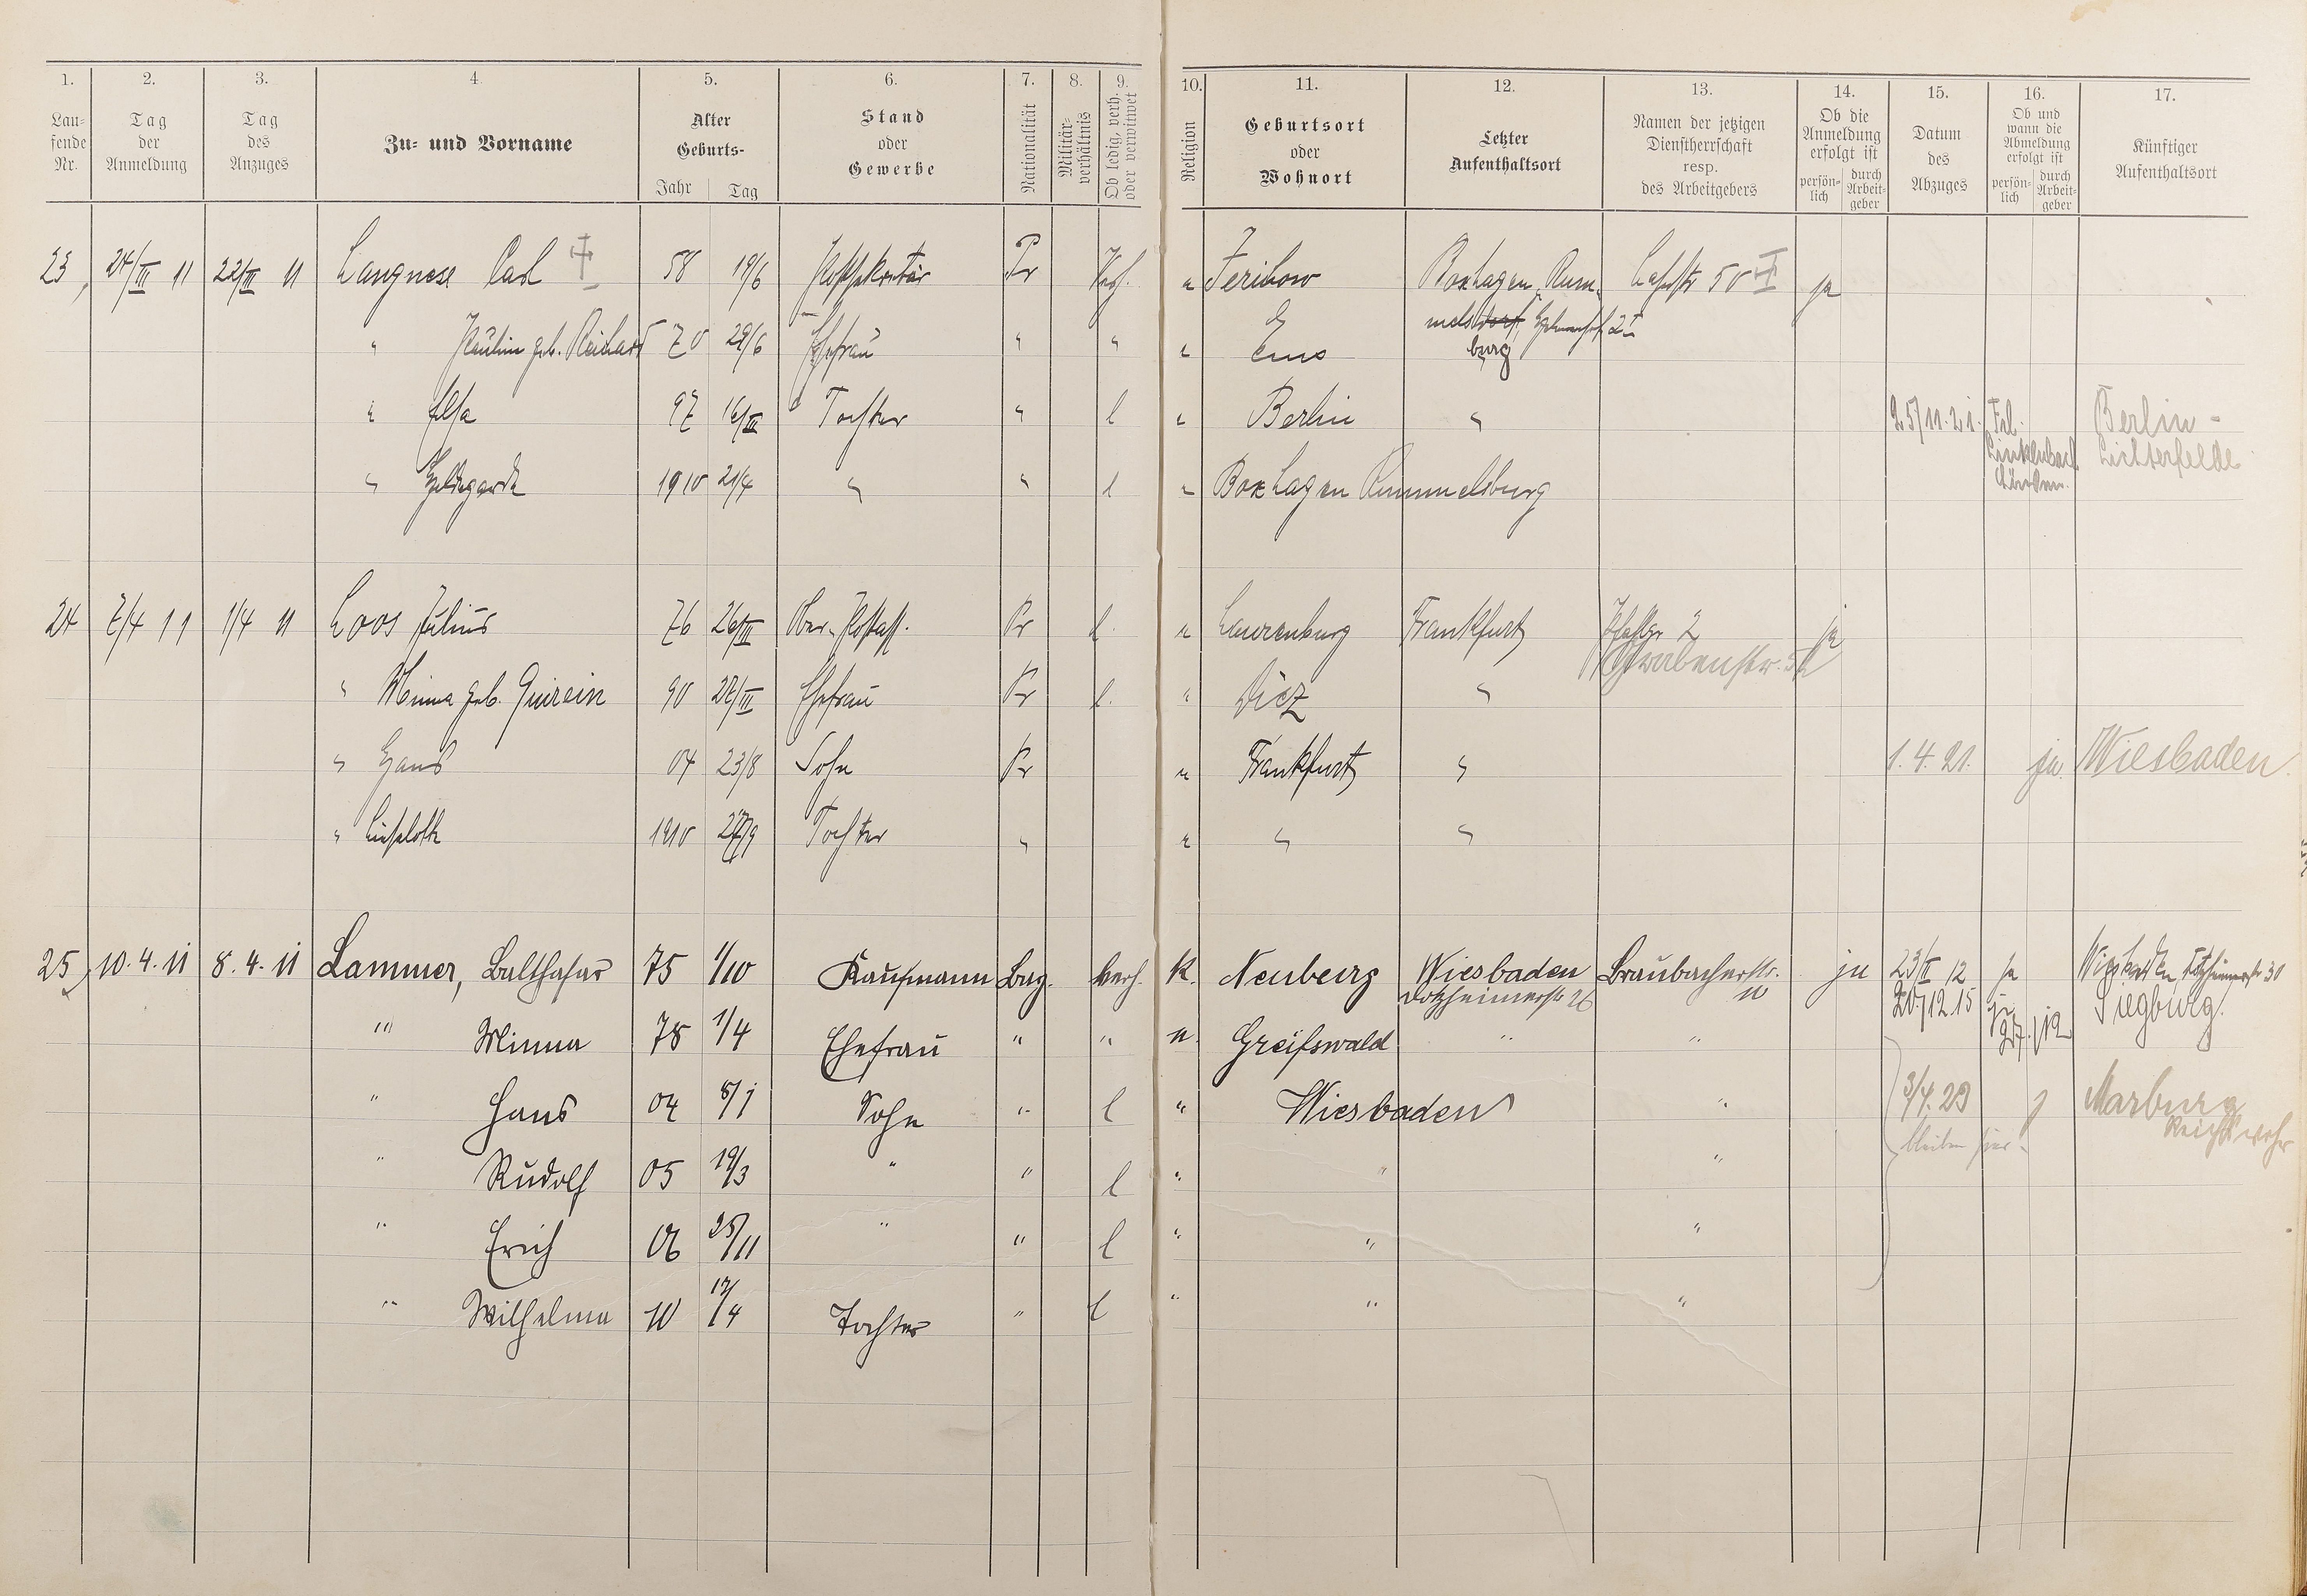 1. 2. 3. 4. 5. 6. 7. 8. 9. 10. 11. 12. 13. 14. 15. 16. 17.
Lau- fende Nr.
Tag der Anmeldung
Tag des Anzuges
Zu- und Vorname
Alter Geburts- Jahr Tag
Stand oder Gewerbe
Nationalität
Militär- verhältnis
Ob ledig, verh. oder verwitwet
Religion
Geburtsort oder Wohnort
Letzter Aufenthaltsort
Namen der jetzigen Dienstherrschaft resp. des Arbeitgebers
Ob die Anmeldung erfolgt ist persön- lich durch Arbeit- geber
Datum des Abzuges
Ob und wann die Abmeldung erfolgt ist persön- lich durch Arbeit- geber
Künftiger Aufenthaltsort
23, 24/III 11 22/III 11 Langnese Carl 58 19/6 Postsekretär Pr Verh. Jerichow Boxhagen Rum- Lahnstr 50 I ja
" geb. Reichard 70 29/6 Ehefrau " " " Ems melsdorf
burg
" Elsa 97 16/III Tochter " l " Berlin " 25/11.21. Frl. Linkenbach Berlin-
Lichterfelde
" Hildegarde 1910 21/4 " " l " Boxhagen Rummelsburg
24 7/4 11 1/4 11 Loos Julius 76 26/III Ober-Postass. Pr l. " Laurenburg Frankfurt 2 ja
Grabenstr.
" Minna geb. Quirein 90 27/III Ehefrau Pr l. " Diez "
" Hans 04 23/8 Sohn Pr " Frankfurt " 1.4.21. ja Wiesbaden.
" Lieselotte 1910 27/9 Tochter " " " "
25, 10.4.11 8.4.11 Lammer, Balthasar 75 1/10 Kaufmann Bay. verh. K. Neuberg Wiesbaden Braubacherstr. ja 23/II 12 ja Wiesbaden, Dotzheimerstr 31
Dotzheimerstr 26 10 20/12.15 ja Siegburg.
" Minna 78 1/4 Ehefrau " " " Greifswald " "
" Hans 04 8/1 Sohn " l " Wiesbaden " 3/4.23 j Marburg
Reichswehr
bleiben hier.
" Rudolf 05 19/3 " " l " " "
" Erich 06 25/11 " " l " " "
" Wilhelma 10 17/4 Tochter " l " " "